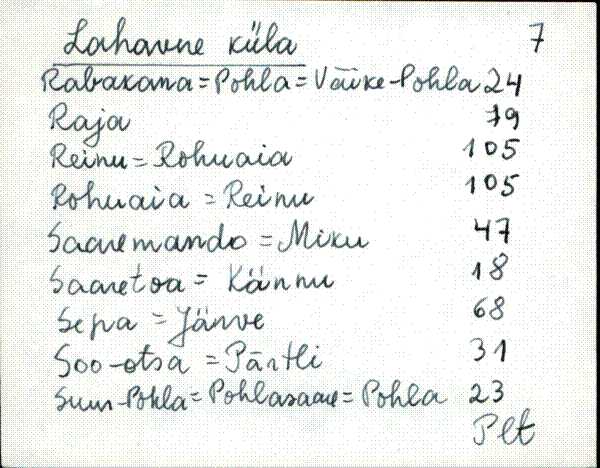 Lahavre küla 7
Rabakana = Pohla = Väike-Pohla 24
Raja 79
Reinu = Rohuaia 105
Rohuaia = Reinu 105
Saaremando = Miku 47
Saaretoa = Kännu 18
Sepa = Järve 68
Soo-otsa = Pärtli 31
Suur-Pohla = Pohlasaare = Pohla 23
Plt